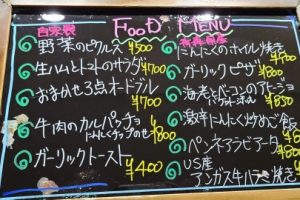 FOOD MENU
自家製
野菜のピクルス ¥500
生ハムとトマトのサラダ ¥700
おまかせ3点オードブル ¥700
牛肉のカルパッチョ
にんにくチップのせ ¥800
ガーリックトースト ¥400
青森県産
にんにくのホイル焼き
ガーリックピザ ¥800
海老とベーコンのアヒージョ
バゲット付 ¥850
激辛にんにく炒めご飯
ペンネアラビアータ
US産
アンガス牛ハラミ焼き